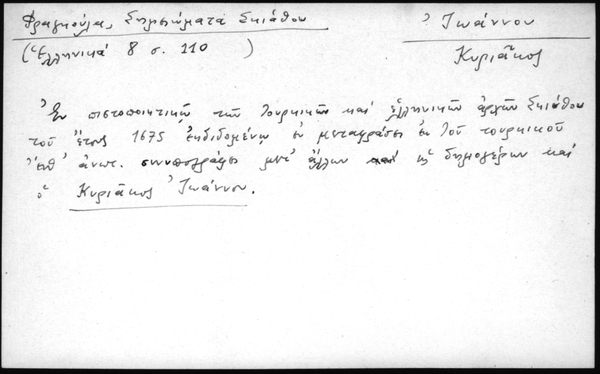 Φραγκούλα, Σημειώματα Σκιάθου
(Ἑλληνικά 8 σ. 110 )
Ἰωάννου
Κυριᾶκος
Ἐν πιστοποιητικῷ τῶν Τουρκικῶν καὶ ἑλληνικῶν ἀρχῶν Σκιάθου
τοῦ ἔτους 1675 ἐκδιδομένῳ ἐν μεταφράσει ἐκ τοῦ τουρκικοῦ
ἀνωτ. συνυπογράφει μετ' ἄλλων καὶ ὡς δημογέρων καὶ
ὁ Κυριᾶκος Ἰωάννου.